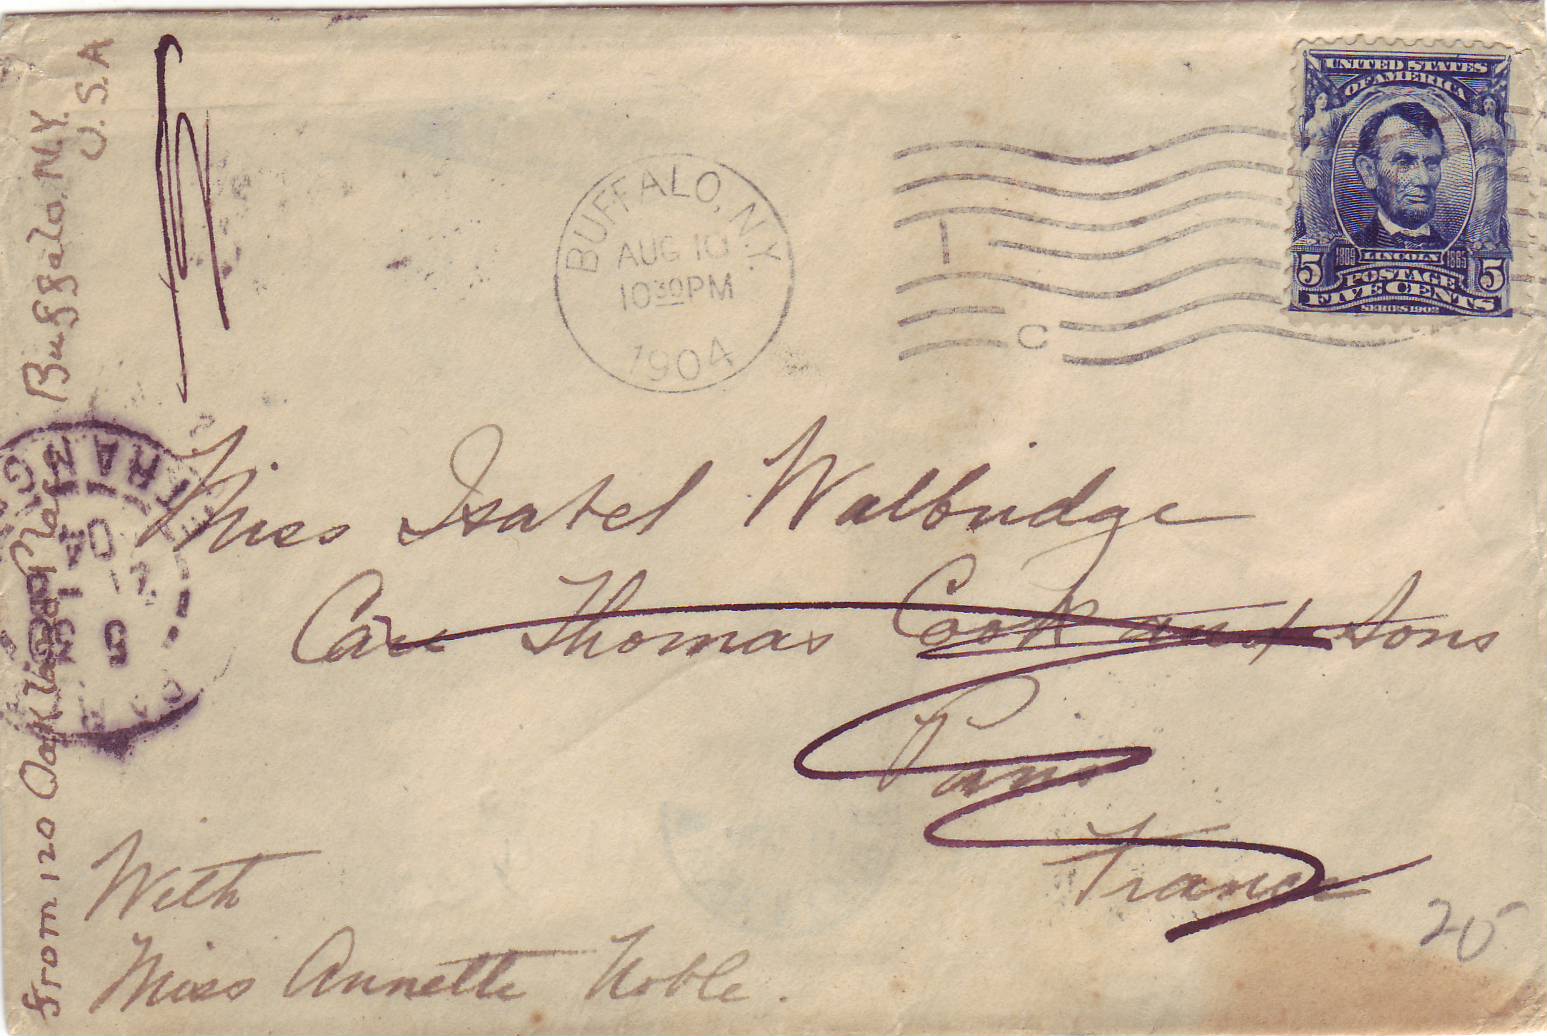 From 120 Oakland Place Buffalo, N.Y.
U.S.A
BUFFALO, N.Y.
AUG 10
10 30 PM
1904
1
C
UNITED STATES
OF AMERICA
1809 LINCOLN 1865
5 POSTAGE 5
FIVE CENTS
SERIES 1902
ETRANGER
04
Miss Isabel Walbridge
Care Thomas Cook and Sons
Paris
France
With
Miss Annette Noble.
20